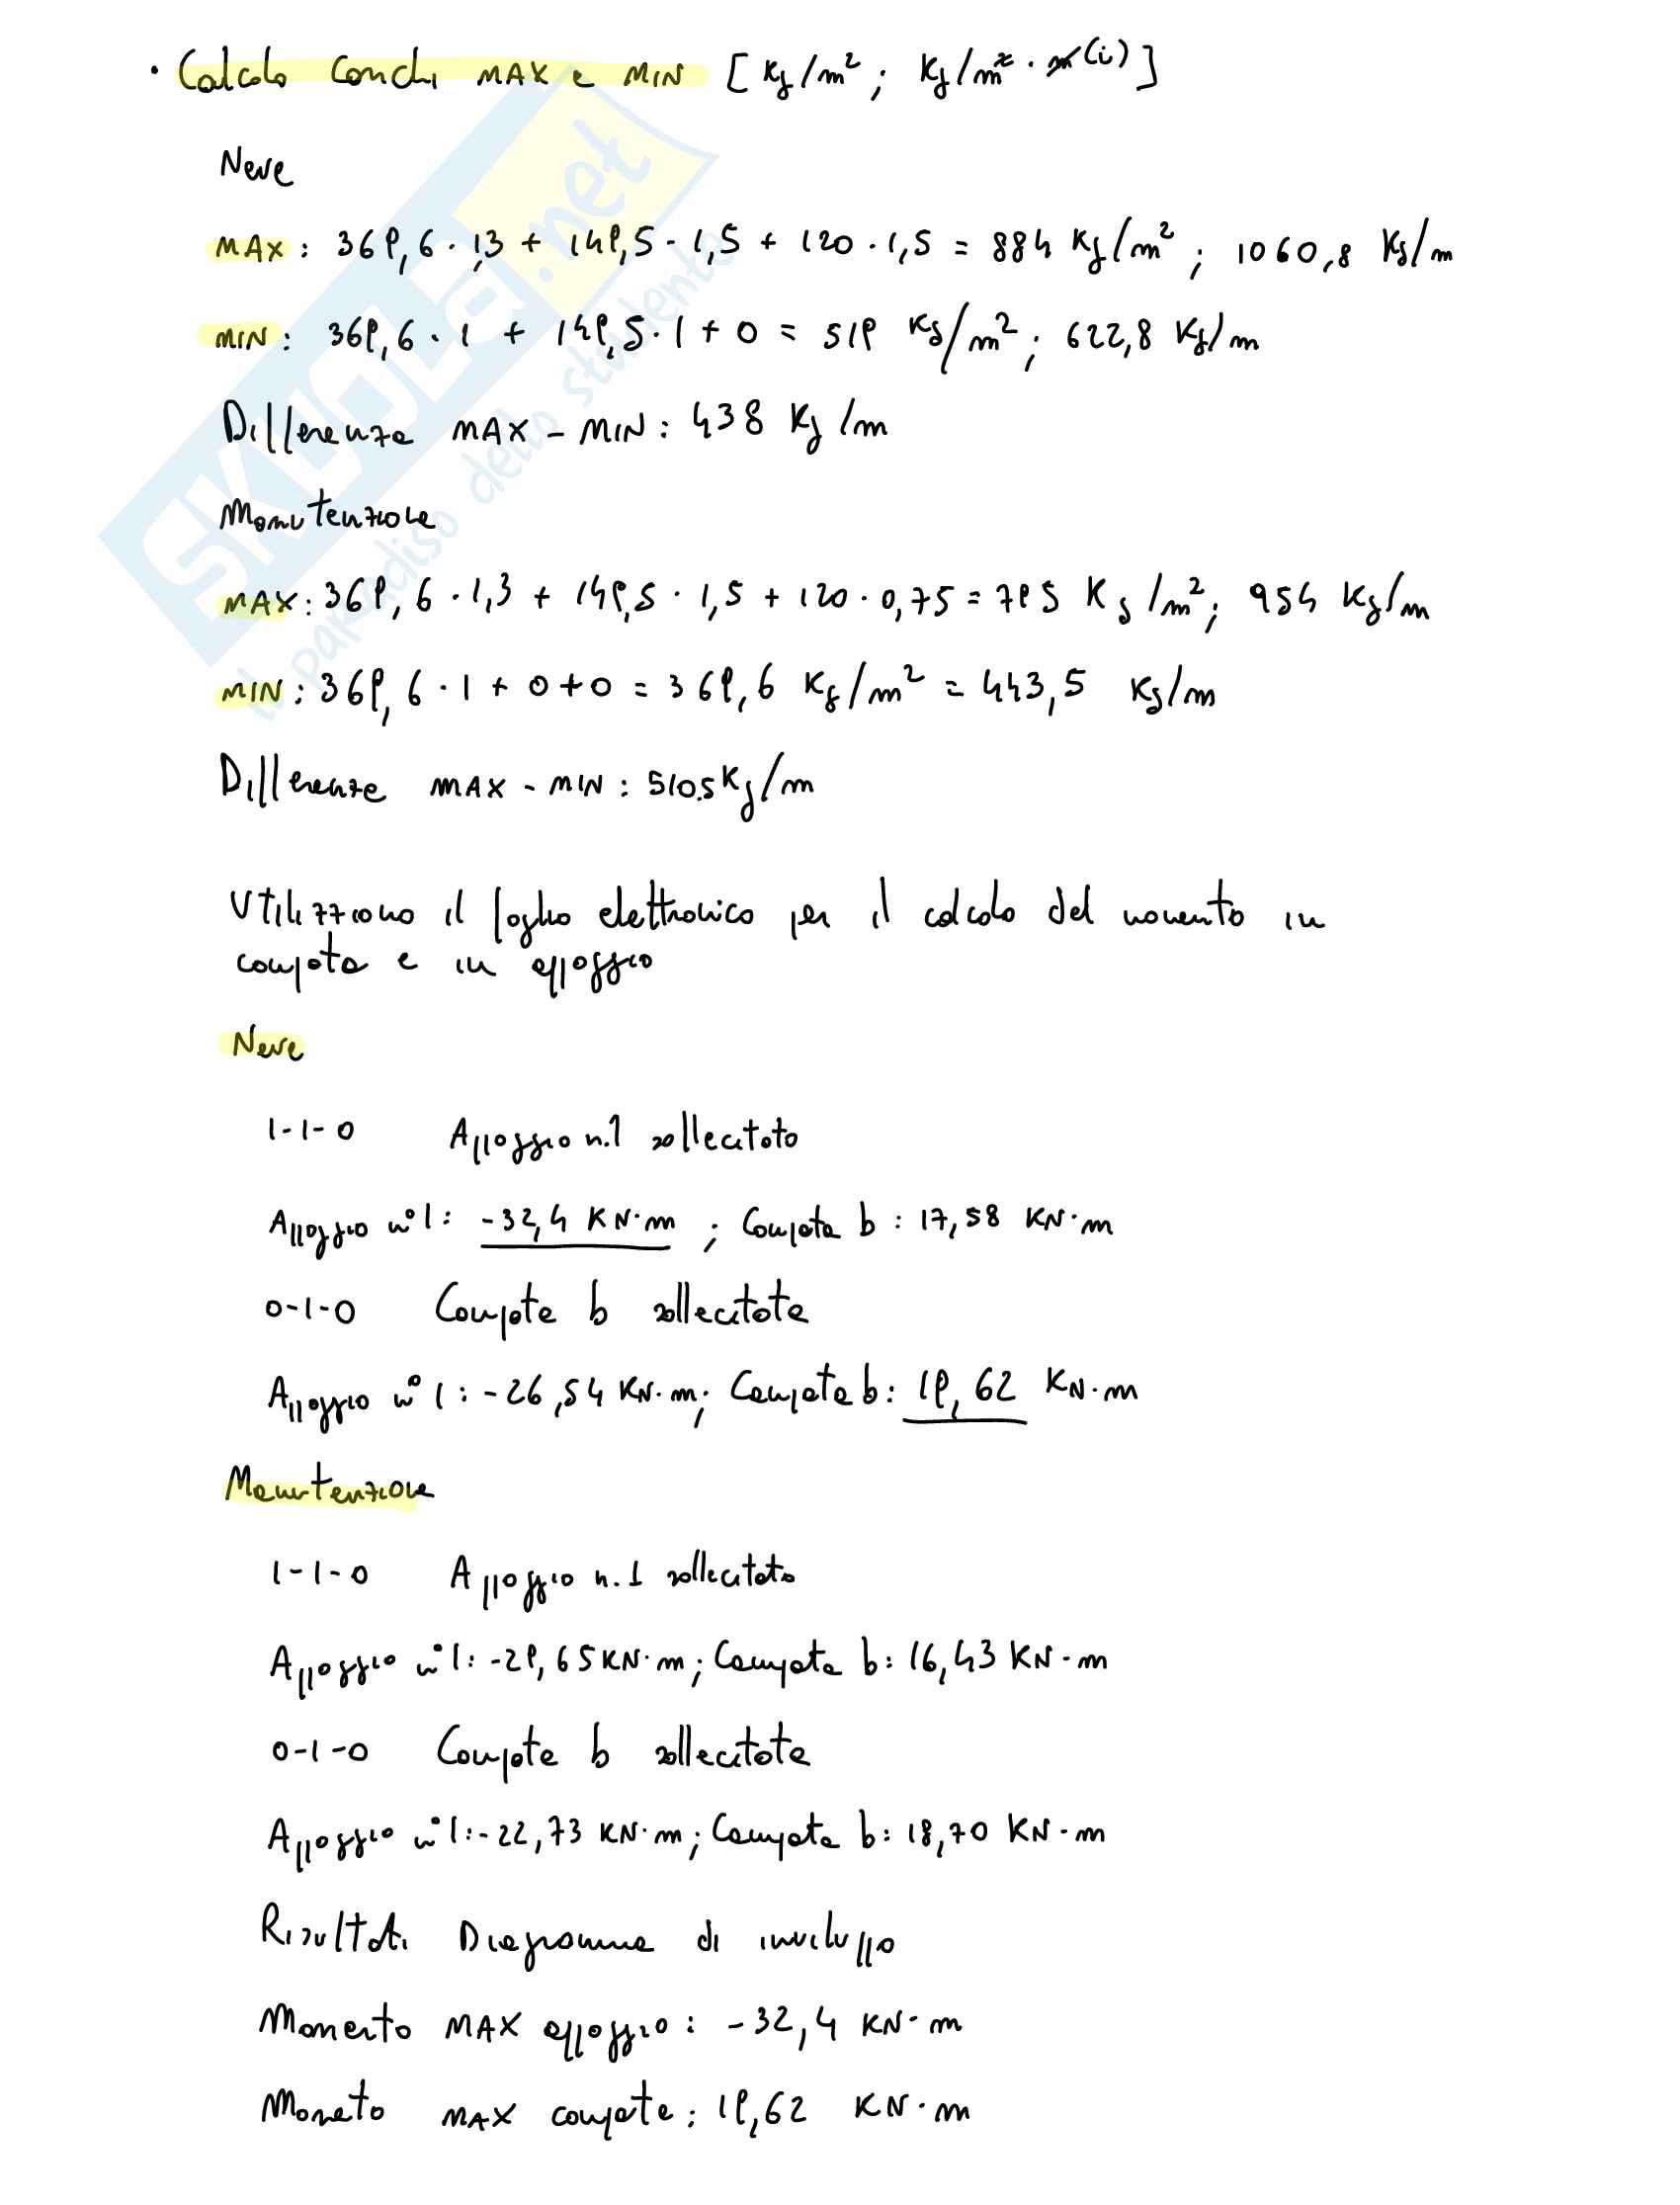 • Calcolo Carichi MAX e MIN [Kg/m²; Kg/m² · m(i)]
Neve
MAX: 369,6 · 1,3 + 149,5 · 1,5 + 120 · 1,5 = 884 Kg/m²; 1060,8 Kg/m
MIN: 369,6 · 1 + 149,5 · 1 + 0 = 519 Kg/m²; 622,8 Kg/m
Differenza MAX - MIN: 438 Kg/m
Manutenzione
MAX: 369,6 · 1,3 + 149,5 · 1,5 + 120 · 0,75 = 795 Kg/m²; 954 Kg/m
MIN: 369,6 · 1 + 0 + 0 = 369,6 Kg/m² = 443,5 Kg/m
Differenza MAX - MIN: 510.5 Kg/m
Utilizziamo il foglio elettronico per il calcolo del momento in
campata e in appoggio
Neve
1-1-0 Appoggio n.1 sollecitato
Appoggio n°1: -32,4 KN·m; Campata b: 17,58 KN·m
0-1-0 Campata b sollecitata
Appoggio n°1: -26,54 KN·m; Campata b: 19,62 KN·m
Manutenzione
1-1-0 Appoggio n.1 sollecitato
Appoggio n°1: -29,65 KN·m; Campata b: 16,43 KN·m
0-1-0 Campata b sollecitata
Appoggio n°1: -22,73 KN·m; Campata b: 18,70 KN·m
Risultati Diagramma di inviluppo
Momento MAX appoggio: -32,4 KN·m
Moneto MAX campata: 19,62 KN·m
SKUOLA.net
il paradiso dello studente